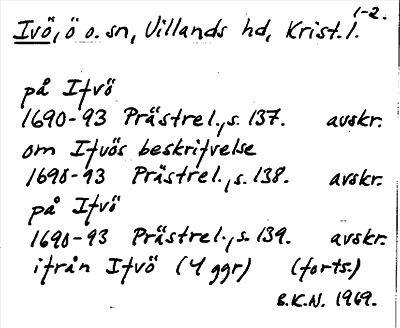 Ivö, ö o. sn, Villands hd, Krist. l. 1-2.
på Ifvö
1690-93 Prästrel., s. 137. avskr.
om Ifvös beskrifvelse
1690-93 Prästrel., s. 138. avskr.
på Ifvö
1690-93 Prästrel., s. 139. avskr.
ifrån Ifvö (4 ggr) (forts.)
B.K.N. 1969.